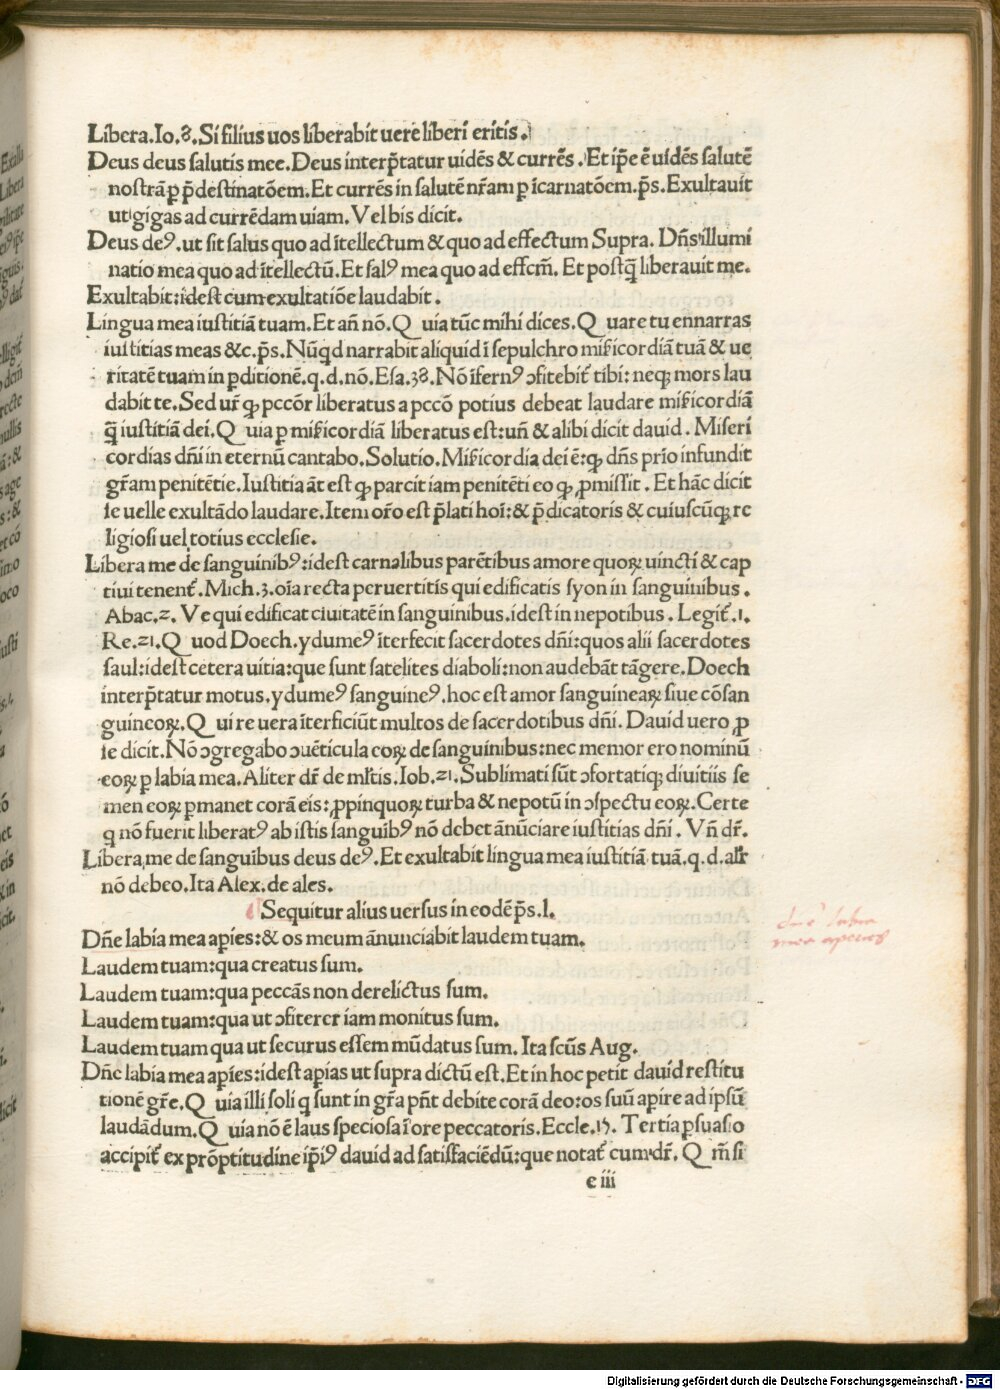 Libera.Io.8.Si filius uos liberabit uere liberi eritis.
Deus deus salutis mee.Deus interp̄tatur uidēs & currēs. Et ip̄e ē uidēs salutē
nostrā p p̄destinatōem.Et currēs in salutē nr̄am p īcarnatōem.p̄s.Exultauit
ut gigas ad currēdam uiam.Vel bis dicit.
Deus deꝰ.ut sit salus quo ad ītellectum & quo ad effectum Supra. Dn̄s illumi
natio mea quo ad ītellectū.Et salꝰ mea quo ad effcm̄. Et postq̄ liberauit me.
Exultabit:idest cum exultatiōe laudabit.
Lingua mea iustitiā tuam.Et an̄ nō.Q uia tūc mihi dices.Q uare tu ennarras
iustitias meas &c.p̄s.Nūqd narrabit aliquid ī sepulchro mīicordiā tuā & ue
ritatē tuam in pditionē.q.d.nō.Esa.38.Nō īfernꝰ ↄfitebit̄ tibi:neqꝫ mors lau
dabit te.Sed ur̄ qꝫ pccōr liberatus a pccō potius debeat laudare mīicordiā
q̄ iustitiā dei.Q uia p mīicordiā liberatus est:un̄ & alibi dicit dauid. Miseri
cordias dn̄i in eternū cantabo.Solutio.Mīicordia dei ē:qꝫ dn̄s prio infundit
gr̄am penitētie.Iustitia āt est qꝫ parcit iam penitēti eo qꝫ ꝓmissit. Et hāc dicit
se uelle exultādo laudare.Item or̄o est p̄lati hoī:& p̄dicatoris & cuiuscūqꝫ re
ligiosi uel totius ecclesie.
Libera me de sanguinibꝰ:idest carnalibus parētibus amore quoꝝ uincti & cap
tiui tenent̄.Mich.3.oīa recta peruertitis qui edificatis syon in sanguinibus.
Abac.2. Ve qui edificat ciuitatē in sanguinibus.idest in nepotibus. Legit̄.1.
Re.21.Q uod Doech.ydumeꝰ īterfecit sacerdotes dn̄i:quos alii sacerdotes
saul:idest cetera uitia:que sunt satelites diaboli:non audebāt tāgere.Doech
interp̄tatur motus.ydumeꝰ sanguineꝰ.hoc est amor sanguineaꝝ siue cōsan
guineoꝝ.Q ui re uera īterficiūt multos de sacerdotibus dn̄i. Dauid uero ꝓ
se dicit.Nō ↄgregabo ↄuēticula eoꝝ de sanguinibus:nec memor ero nominū
eoꝝ p labia mea.Aliter dr̄ de ml̄tis.Iob.21.Sublimati sūt ↄfortatiqꝫ diuitiis se
men eoꝝ pmanet corā eis:ꝓpinquoꝝ turba & nepotū in ↄspectu eoꝝ.Certe
q nō fuerit liberatꝰ ab istis sanguībꝰ nō debet ānūciare iustitias dn̄i. Vn̄ dr̄.
Libera me de sanguībus deus deꝰ.Et exultabit lingua mea iustitiā tuā.q.d.alr̄
nō debeo.Ita Alex.de ales.
Sequitur alius uersus in eodē p̄s.l.
Dn̄e labia mea apies:& os meum ānunciabit laudem tuam.
Laudem tuam:qua creatus sum.
Laudem tuam:qua peccās non derelictus sum.
Laudem tuam:qua ut ↄfiterer iam monitus sum.
Laudem tuam qua ut securus essem mūdatus sum. Ita scūs Aug.
dn̄e labia
mea aperies
Dn̄e labia mea apies:idest apias ut supra dictū est.Et in hoc petit dauid restitu
tionē gr̄e.Q uia illi soli q sunt in gr̄a pn̄t debite corā deo:os suū apire ad ipsū
laudādum.Q uia nō ē laus speciosa ī ore peccatoris.Eccle.15. Tertia psuasio
accipit̄ ex prōptitudine ip̄iꝰ dauid ad satisfaciēdū:que notat̄ cum dr̄. Q m̄ si
e iii
Digitalisierung gefördert durch die Deutsche Forschungsgemeinschaft - DFG